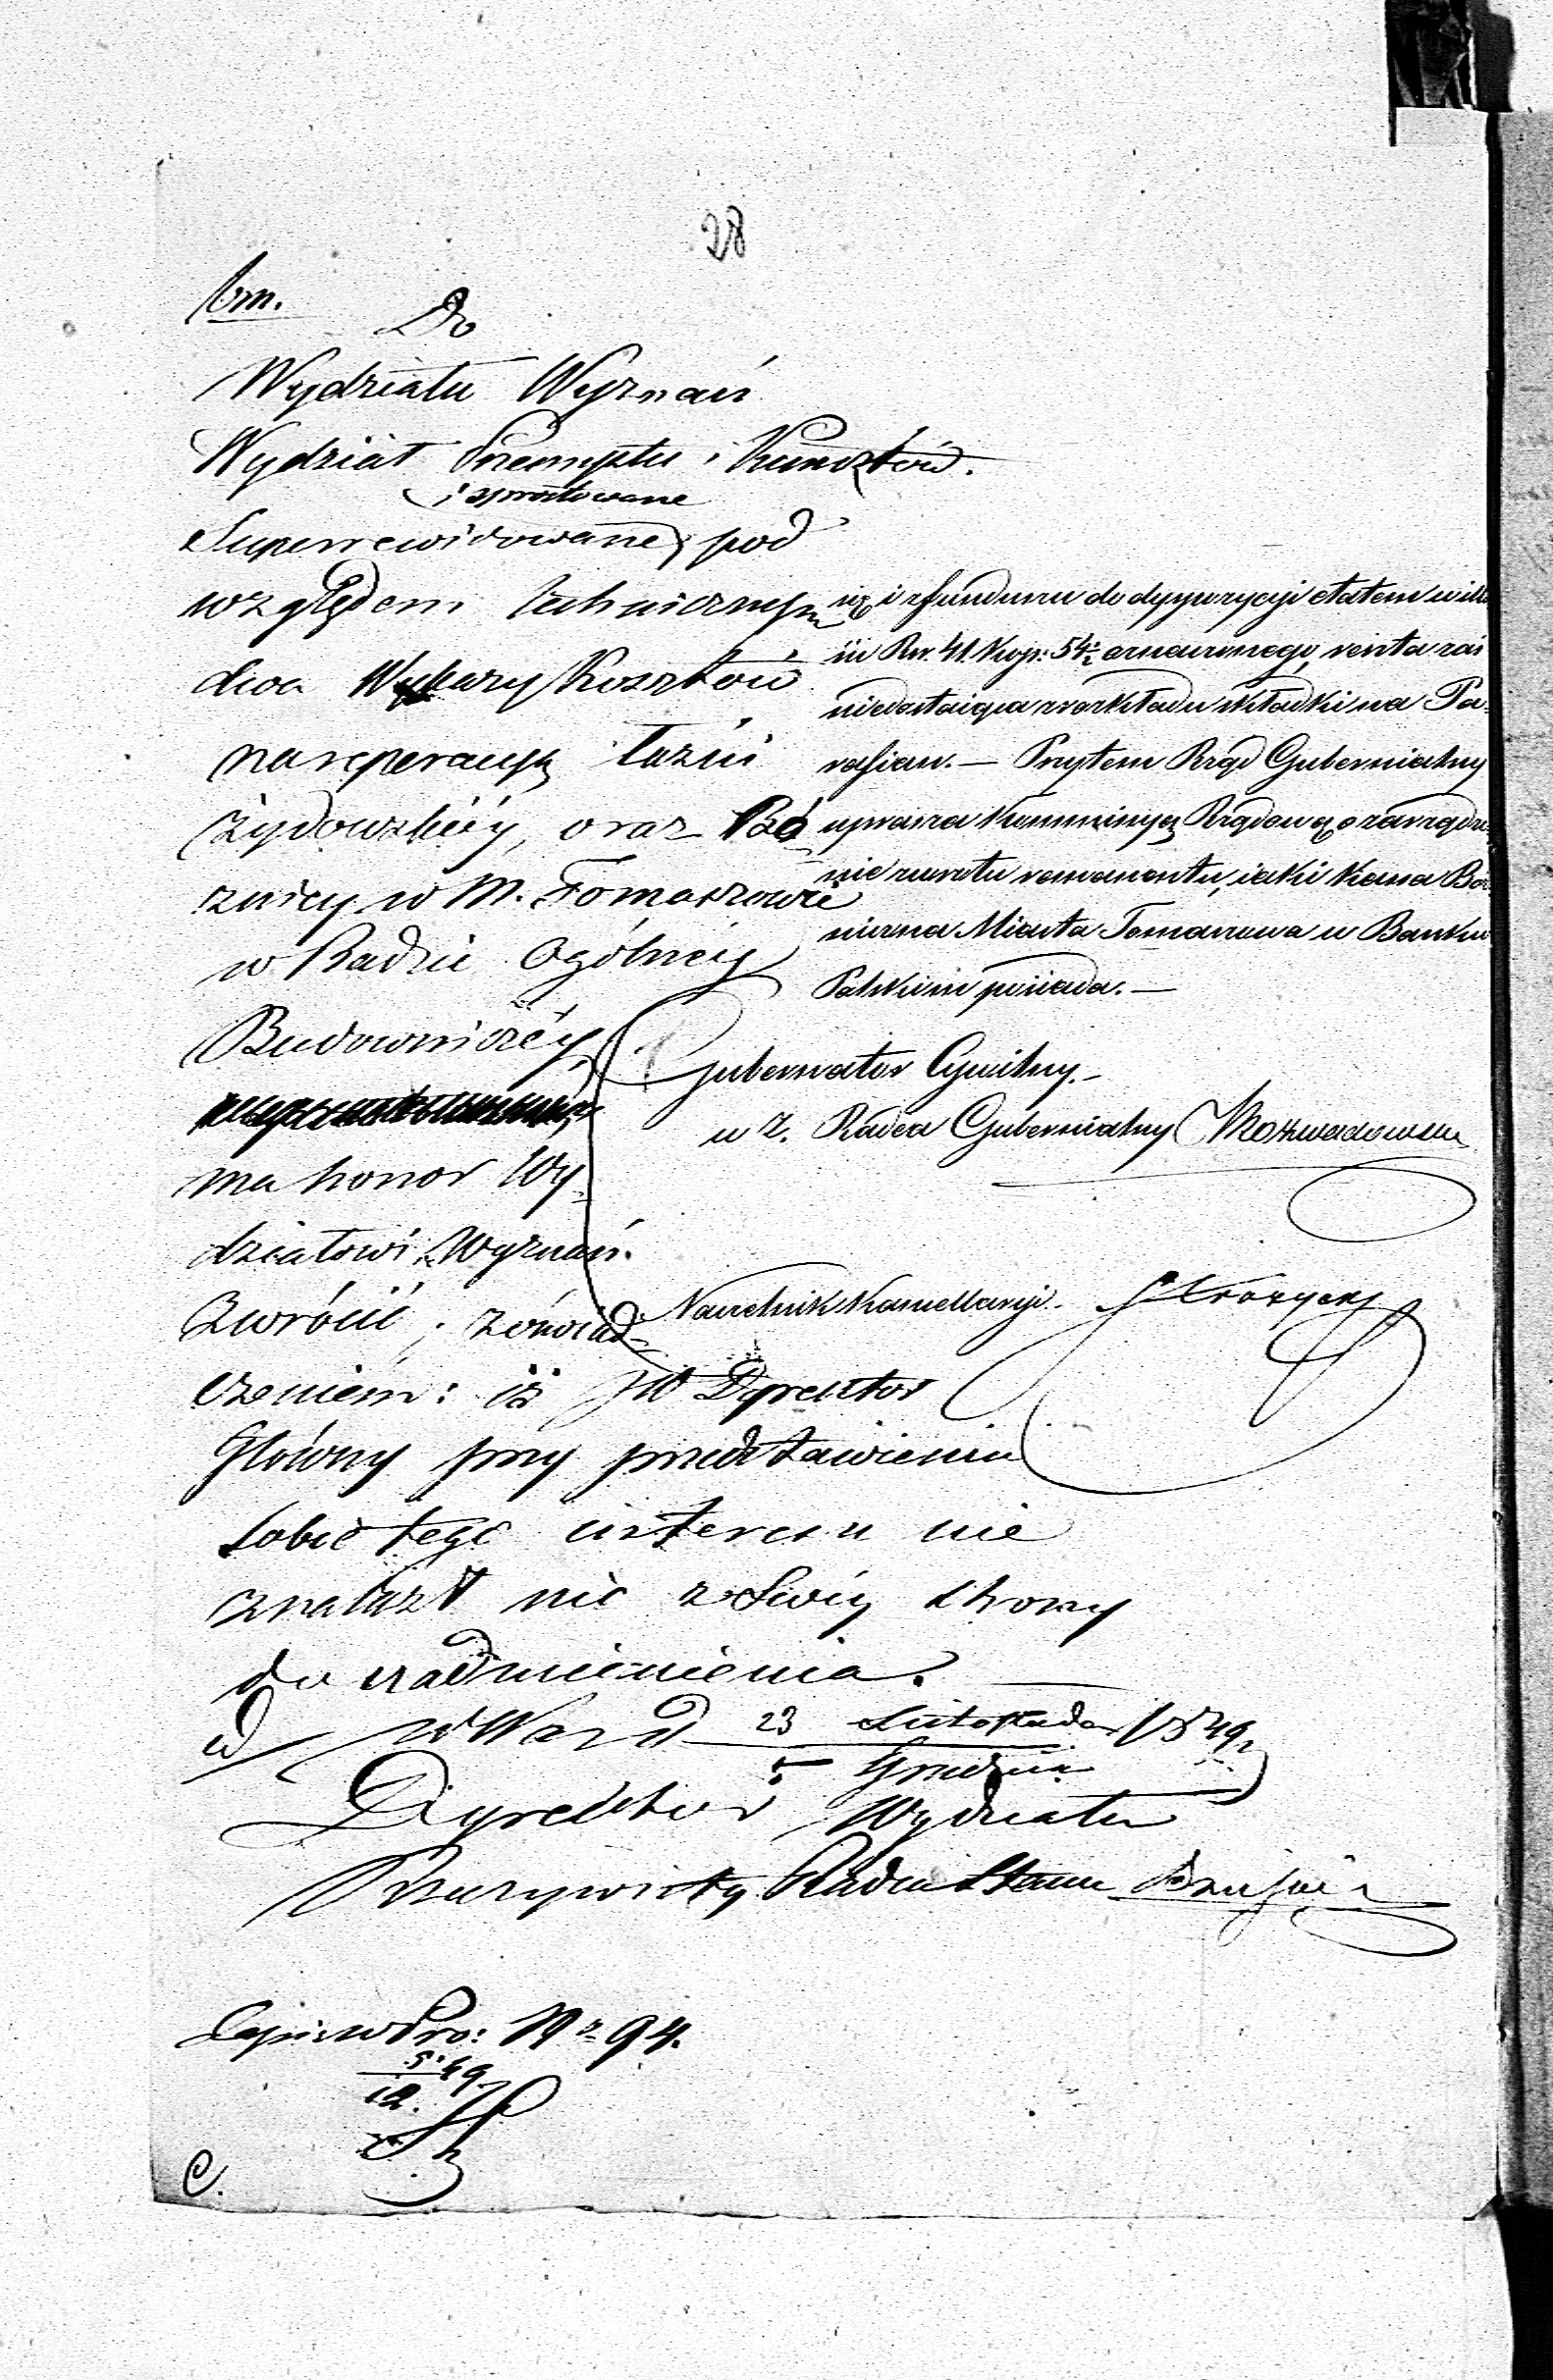 28
Do
Wydziału Wyznań
Wydział Przemysłu i Kunsztów.
i sprostowane
Superrewidowane pod
względem technicznym
dwa Wykazy Kosztów
na reperacyą łaźni
żydowskiéy, oraz Bó
żnicy w M. Tomaszowie
w Radzie Ogólnéy
Budowniczéy,
ma honor Wy-
działowi Wyznań
zwrócić, z oświad-
czeniem: iż JW Dyrektor
Główny przy przedstawieniu
sobie tego interesu nie
znalazł nic z Swéy strony
do nadmienienia.
w Warsz d 23 Listopada / 5 Grudnia 1849 r
Dyrektor Wydziału
Rzeczywisty Radca Stanu
94.
49
12.
C.
i z funduszu do dyspozycyi etatem
Rs. 41. Kop: 54½ oznaczonego, reszta zaś
niedostaiąca z rozkładu składki na Pa-
rafian. — Przytem Rząd Gubernialny
uprasza Kommissyą Rządową o zarządze-
nie zwrotu remanentu, iaki Kassa Bóż
niczna Miasta Tomaszowa w Banku
Polskim posiada. —
Gubernator Cywilny. —
w z. Radca Gubernialny Rozwadowski
Naczelnik Kancellaryi.